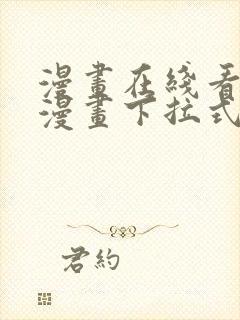 漫畫在綫看
漫畫下拉式
君約